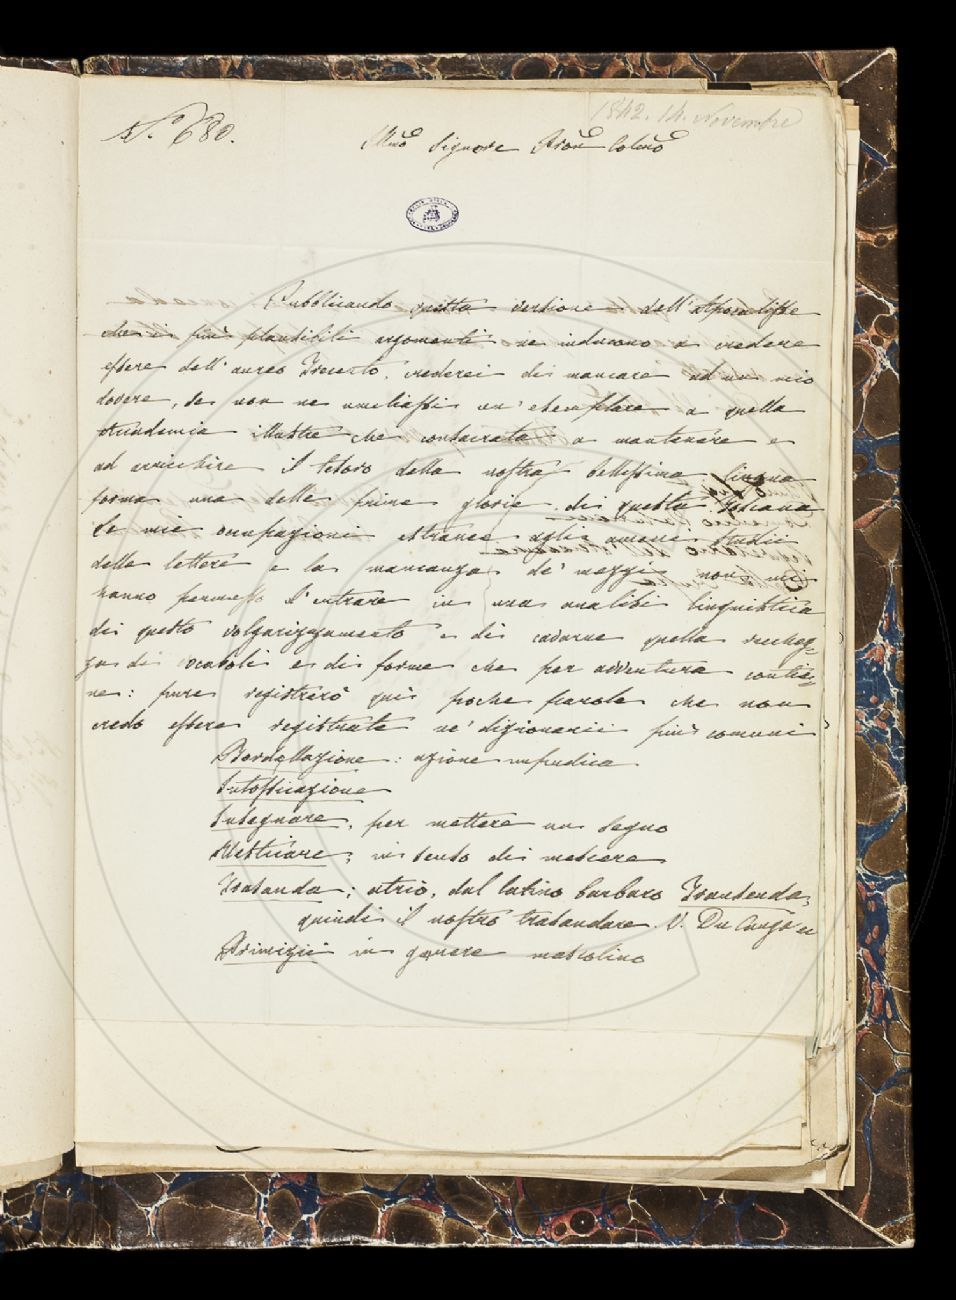 N.° 680.
1842. 14. Novembre
Illmo Signore Pron Colmo
Pubblicando questa versione dell'Apocalisse
che i più plausibili argomenti ne inducono a credere
essere dell'aureo Trecento, crederei di mancare ad un mio
dovere, se non ne umiliassi un'esemplare a quella
Accademia illustre che consacrata a mantenere e
ad arricchire il tesoro della nostra bellissima lingua
forma una delle prime glorie di questa Toscana
Le mie occupazioni estranee agli ameni studii
delle lettere e la mancanza de' mezzi non mi
hanno permesso l'entrare in una analisi linguistica
di questo volgarizzamento e di cavarne quella ricchez-
za di vocaboli e di forme che per avventura contie-
ne: pure registrerò qui poche parole che non
credo essere registrate ne' dizionarii più comuni
Bordellazione: azione impudica
Intossicazione
Insegnare, per mettere un segno
Mesticare; in senso di mescere
Trasanda; atrio, dal latino barbaro Transenda,
quindi il nostro trasandare. V. Du Cange
Primizii in genere mascolino